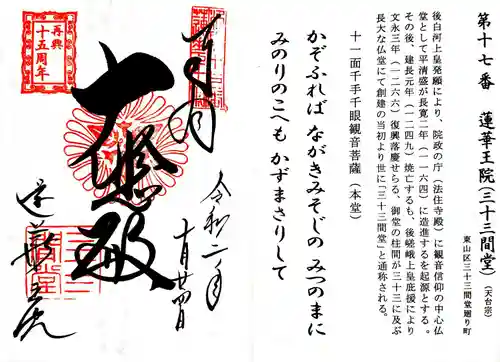 第十七番　蓮華王院(三十三間堂)(天台宗)
東山区三十三間堂廻り町
後白河上皇発願により、院政の庁(法住寺殿)に観音信仰の中心仏
堂として平清盛が長寛二年(一一六四)に造進するを起源とする。
その後、建長元年(一二四九)焼亡するも、後嵯峨上皇庇援により
文永三年(一二六六)復興落慶せらる、御堂の柱間が三十三に及ぶ
長大な仏堂にて創建の当初より世に「三十三間堂」と通称される。
十一面千手千眼観音菩薩(本堂)
かぞふれば ながきみそじの みつのまに
みのりのこへも かずまさりして
再興
十五周年
奉拝
令和二年
十月廿四日
大悲殿
蓮華王院